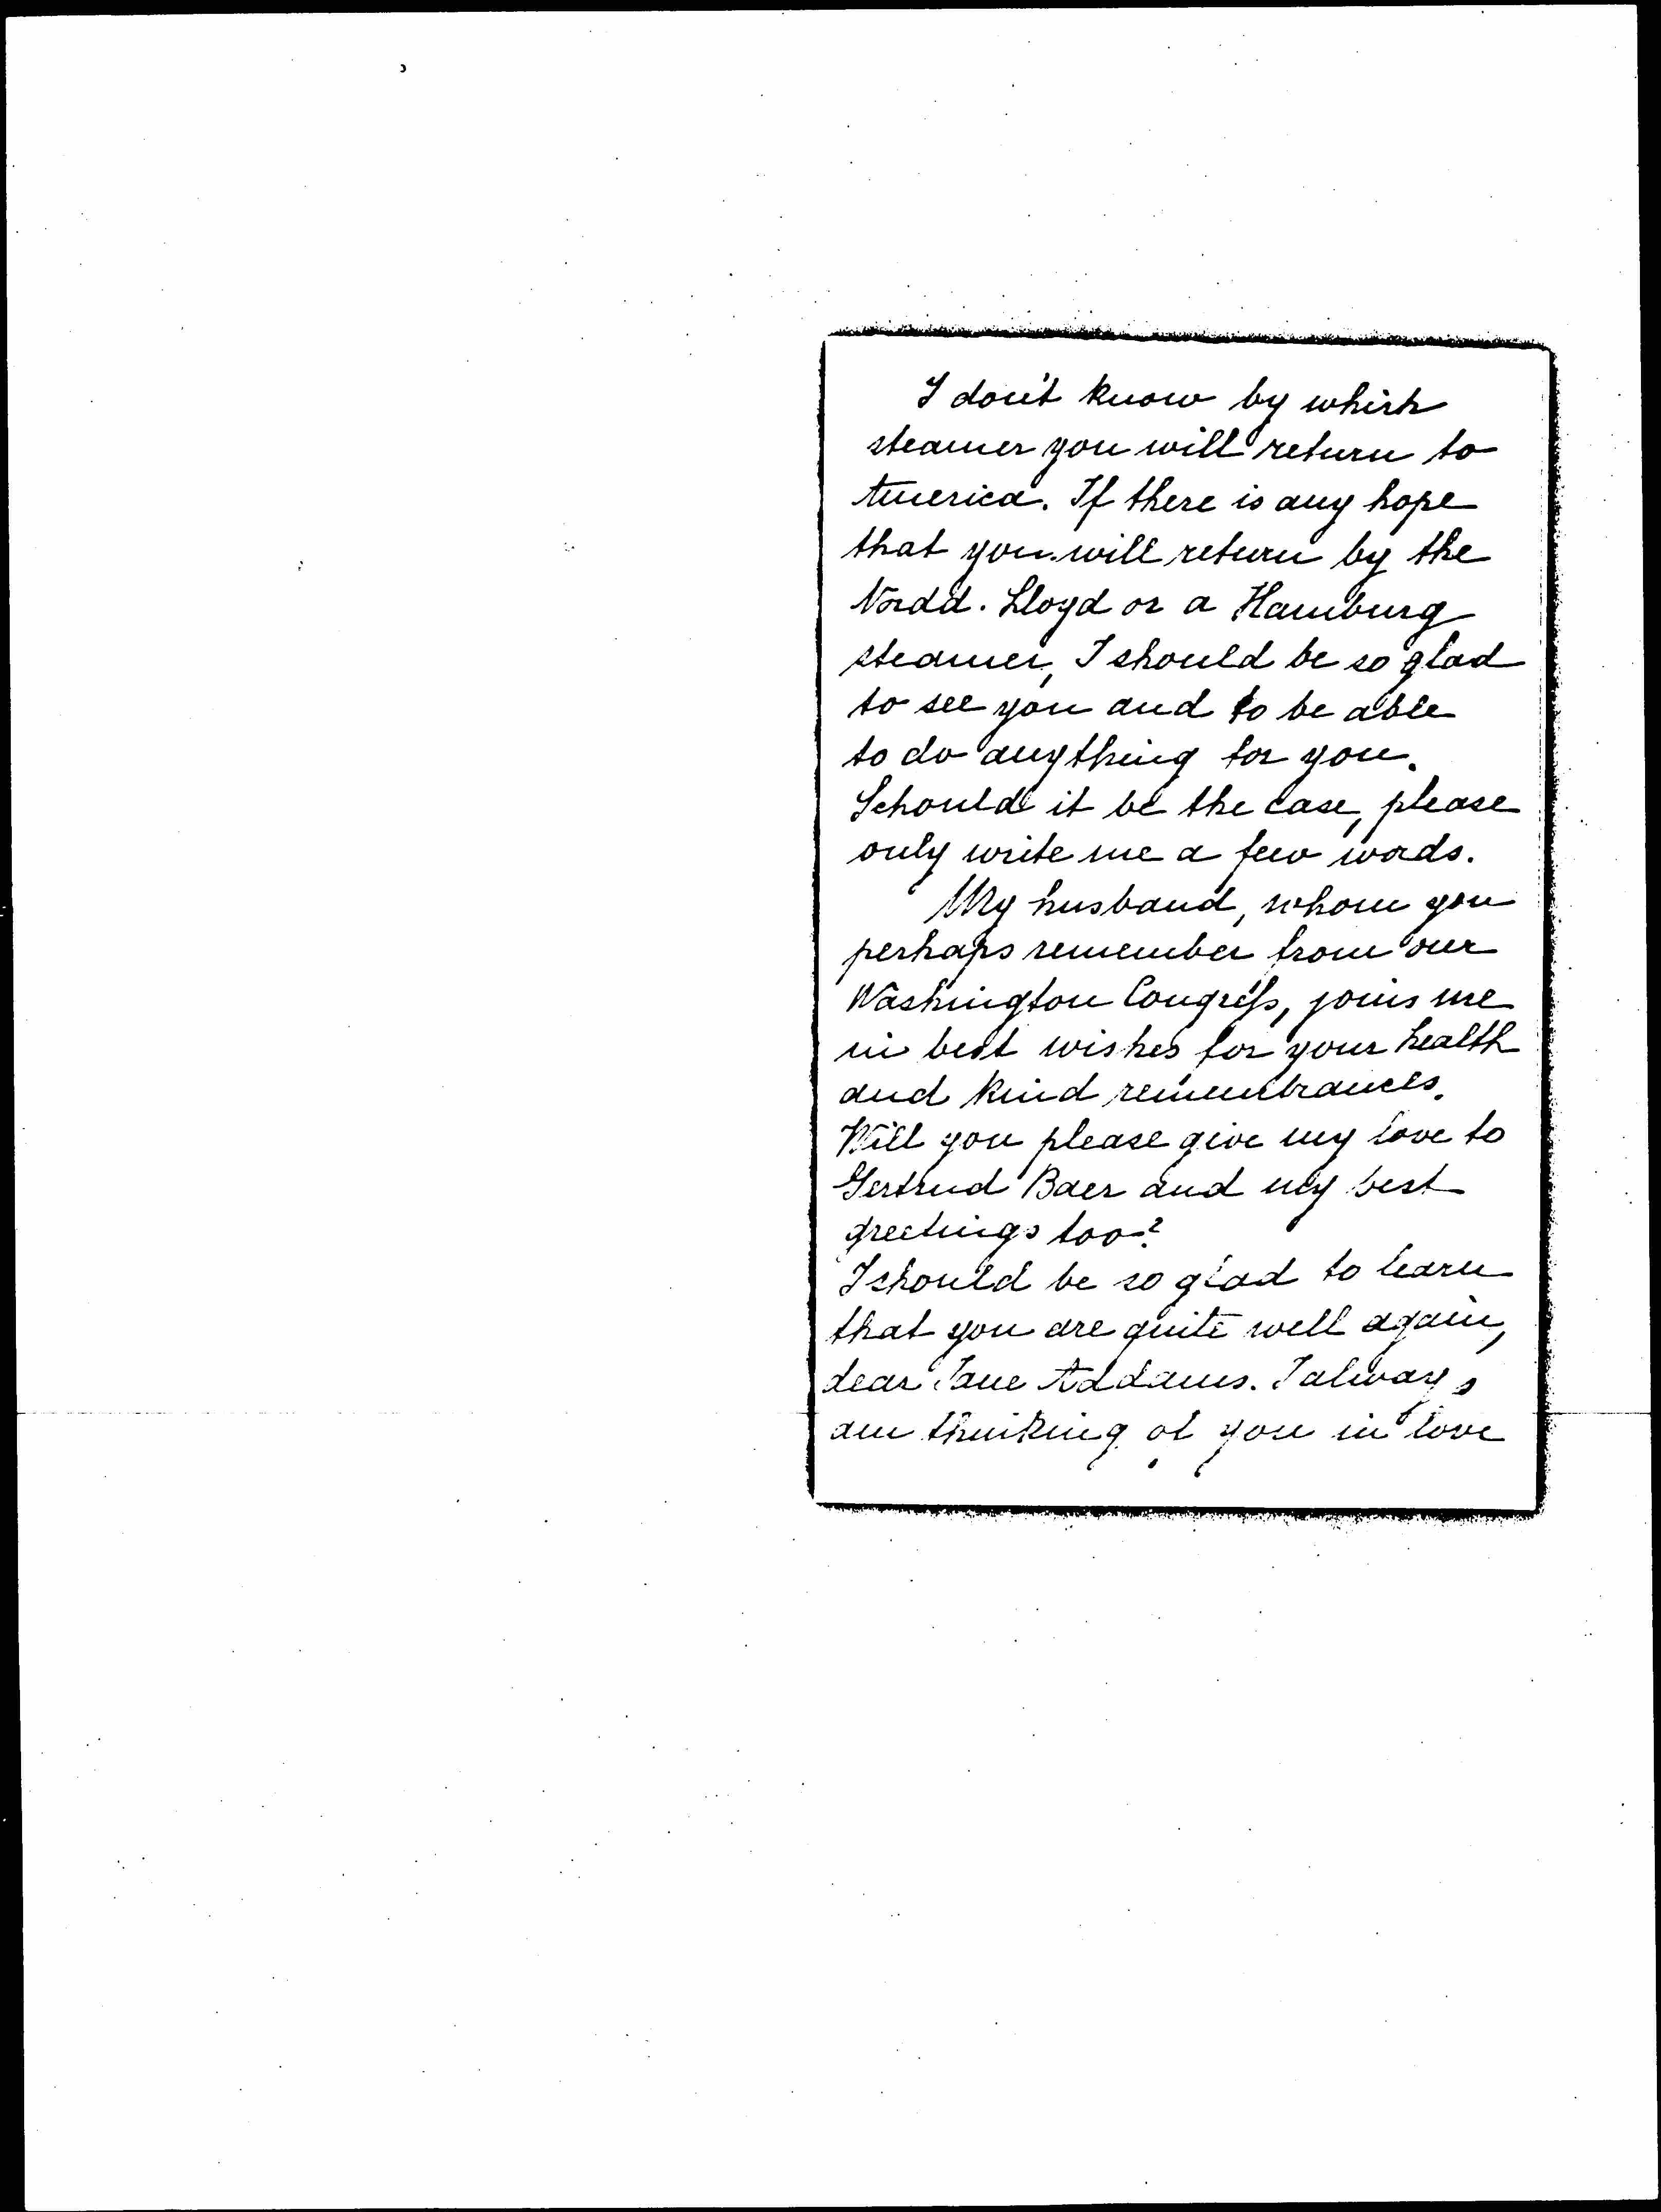 I don't know by which
steamer you will return to
America. If there is any hope
that you will return by the
Nordd. Lloyd or a Hamburg
steamer, I should be so glad
to see you and to be able
to do anything for you.
Schould it be the case, please
only write me a few words.
My husband, whom you
perhaps remember from our
Washington Congress, joins me
in best wishes for your health
and kind remembrances.
Will you please give my love to
Gertrud Baer and my best
greetings too?
I should be so glad to learn
that you are quite well again,
dear Jane Addams. I always
am thinking of you in love